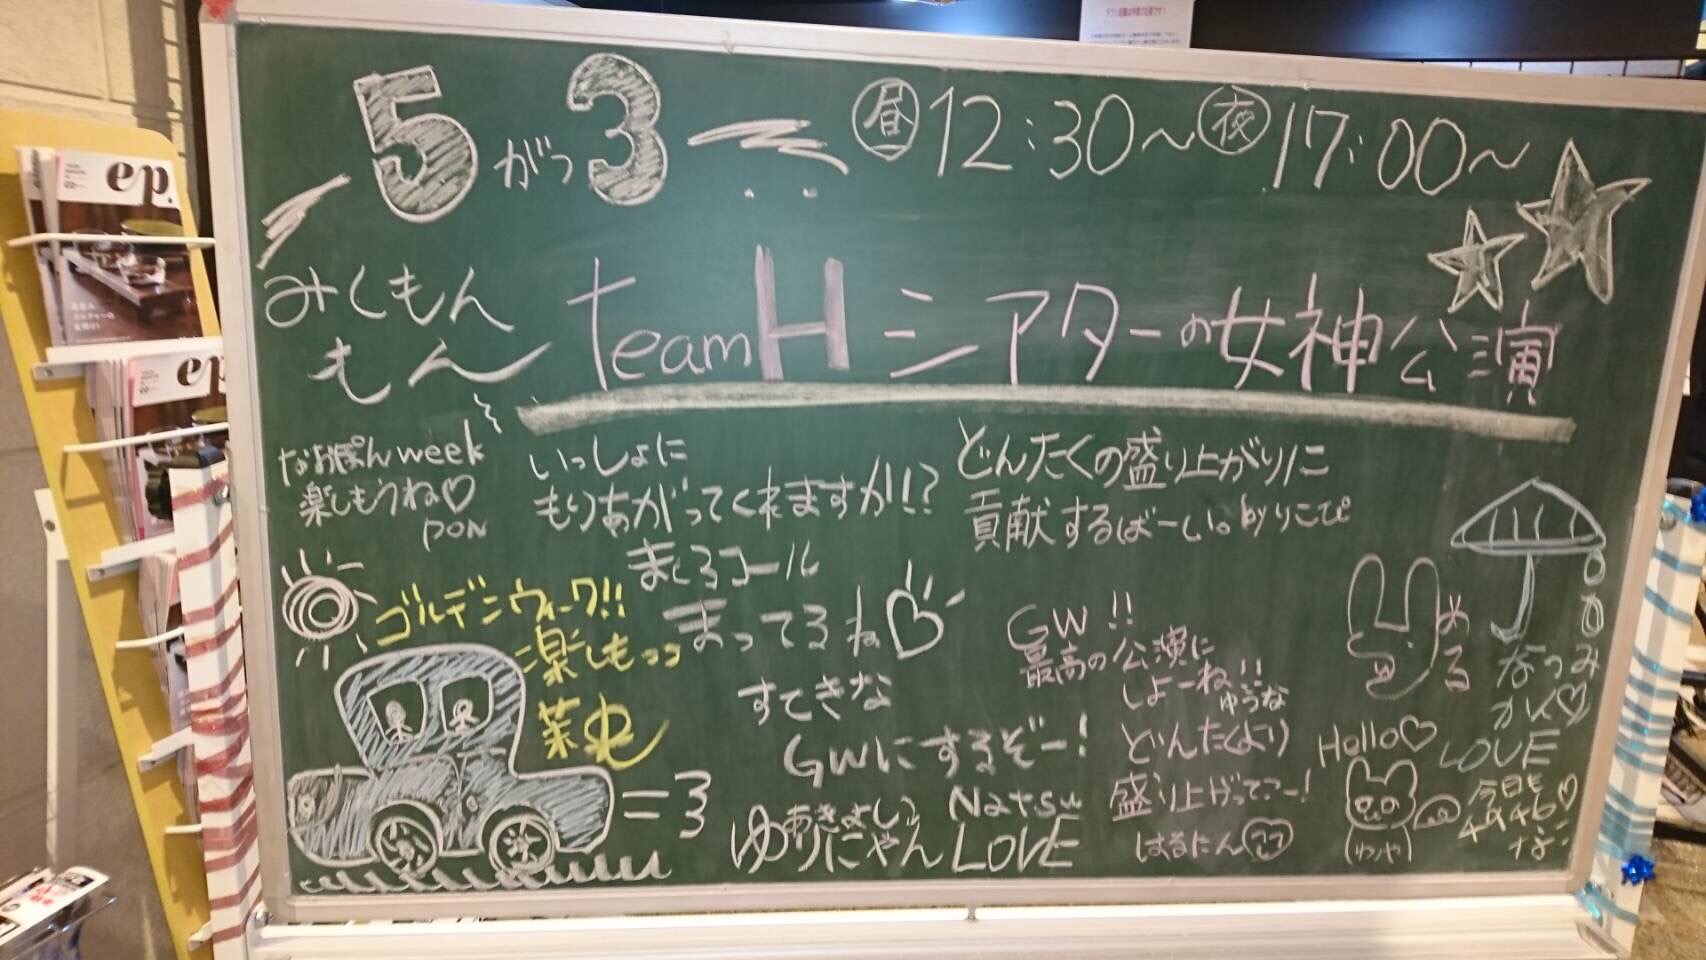 5がつ3
昼12:30~夜17:00~
teamHシアターの女神公演
みくもん
もん
なおぽんweek
楽しもうね♡
PON
いっしょに
もりあがってくれますか!!?
ましろコール
まってるね♡
どんたくの盛り上がりに
貢献するばーい。byりこぴ
ゴルデンウィーク!!
楽しもっっ
すてきな
GWにするぞー!
あきよしっ
ゆりにゃん
Natsu
LOVE
GW!!
最高の公演に
しよーね!!
ゆうな
どんたくより
盛り上がってこー!
はるたん
める
なつみ
かん♡
LOVE
Hello♡
今日も
=3
ep.
ep